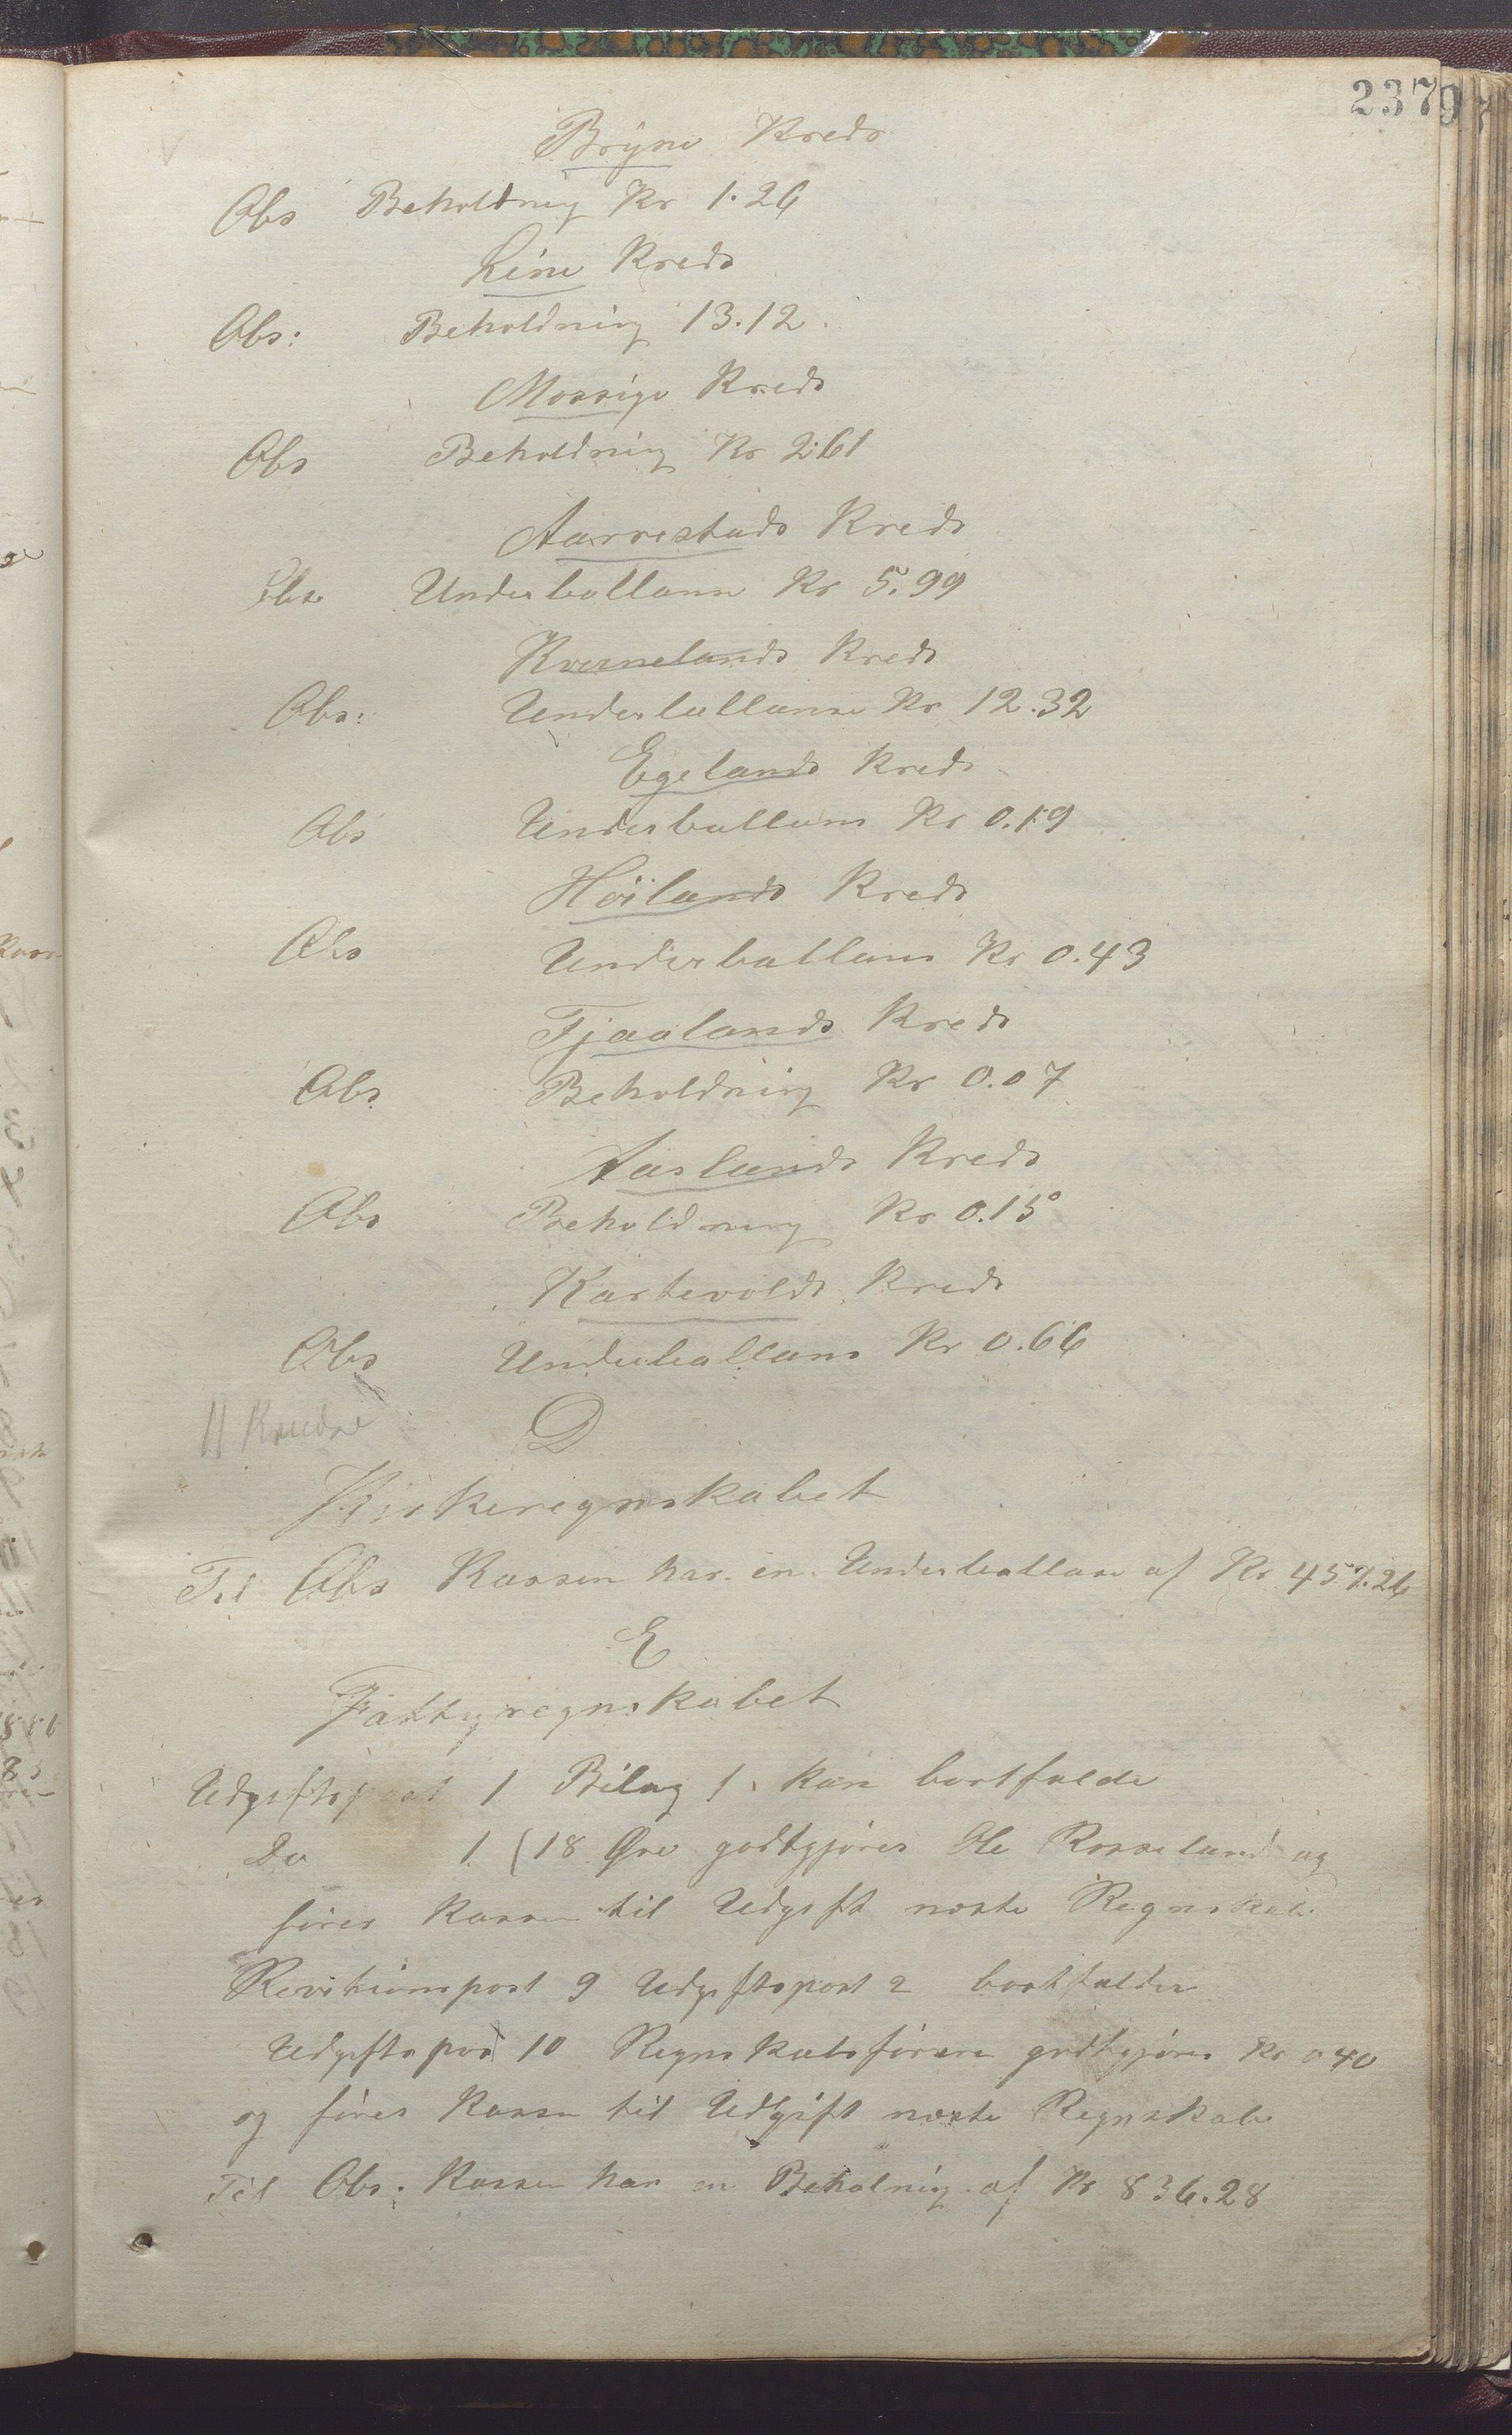 237
Bryne Kreds
Obs Beholdning Kr 1.26
Line Kreds
Obs: Beholdning 13.12.
Mossige Kreds
Obs Beholdning Kr 2.61
Aarrestads Kreds
Obs Underballanse Kr 5.99
Kvernelands Kreds
Obs: Underballanse Kr 12.32
Egelands Kreds
Obs Underballans Kr 0.19
Höilands Kreds
Obs Underballans Kr 0.43
Tjaalands Kreds
Obs Beholdning Kr 0.07
Aaslands Kreds
Obs Beholdning Kr 0.15
Kartevolds Kreds
Obs Underballans Kr 0.66
11 Kredse
D
Kirkeregnskabet
Til Obs Kassen har en Underballase af Kr 457.26
E
Fattigregnskabet
Udgiftspost 1 Bilag 1 kan bortfalde
Do 1 (18 Øre godtgjöres Ole Rosseland og
föres Kassen til Udgift næste Regnskab
Revisionspost 9 Udgiftspost 2 bortfalder
Udgiftspos 10 Regnskabsföreren godtgjöres Kr 0 40
og föres Kassen til Udgift næste Regnskab
Til Obs: Kassen har en Beholnig af Kr 836.28